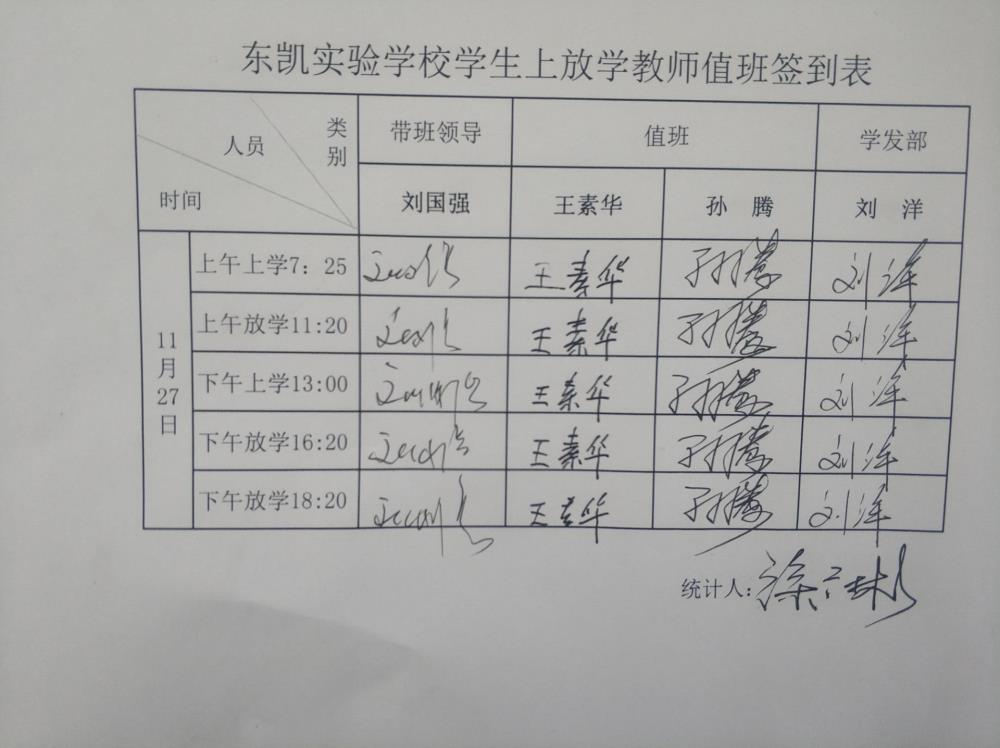 东凯实验学校学生上放学教师值班签到表
类别 人员 时间 带班领导 值班 学发部
刘国强 王素华 孙 腾 刘 洋
11月27日
上午上学7：25 王素华 孙腾 刘洋
上午放学11:20 王素华 孙腾 刘洋
下午上学13:00 王素华 孙腾 刘洋
下午放学16:20 王素华 孙腾 刘洋
下午放学18:20 王素华 孙腾 刘洋
统计人：